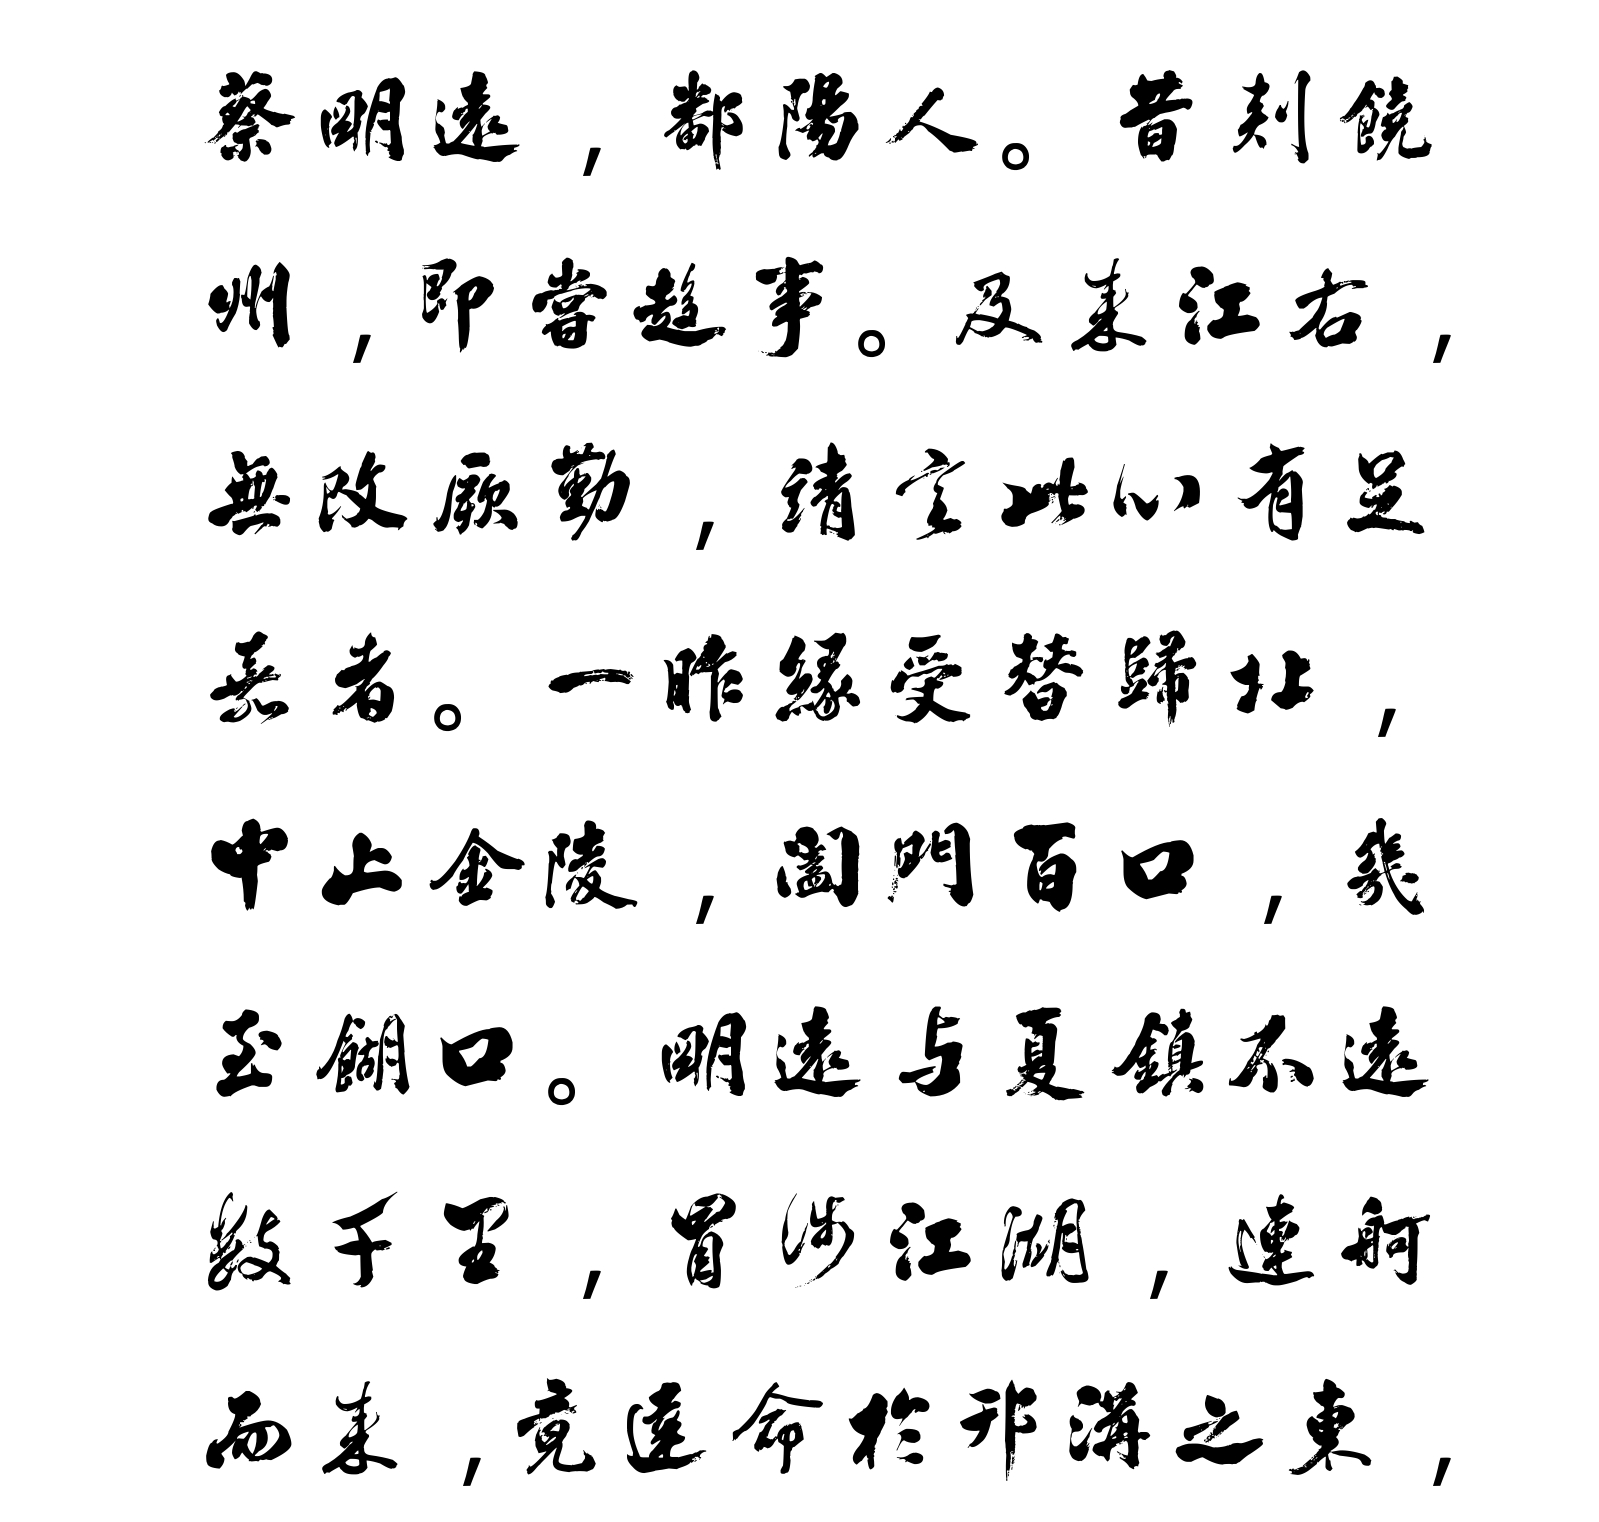 蔡明遠，鄱陽人。昔刾饒
州，即嘗趍事。及来江右，
無改厥勤，靖言此心有足
嘉者。一昨緣受替歸北，
中止金陵，闔門百口，幾
至餬口。明遠与夏鎮不遠
數千里，冒涉江湖，連舸
而来，竟達命於邗溝之東，